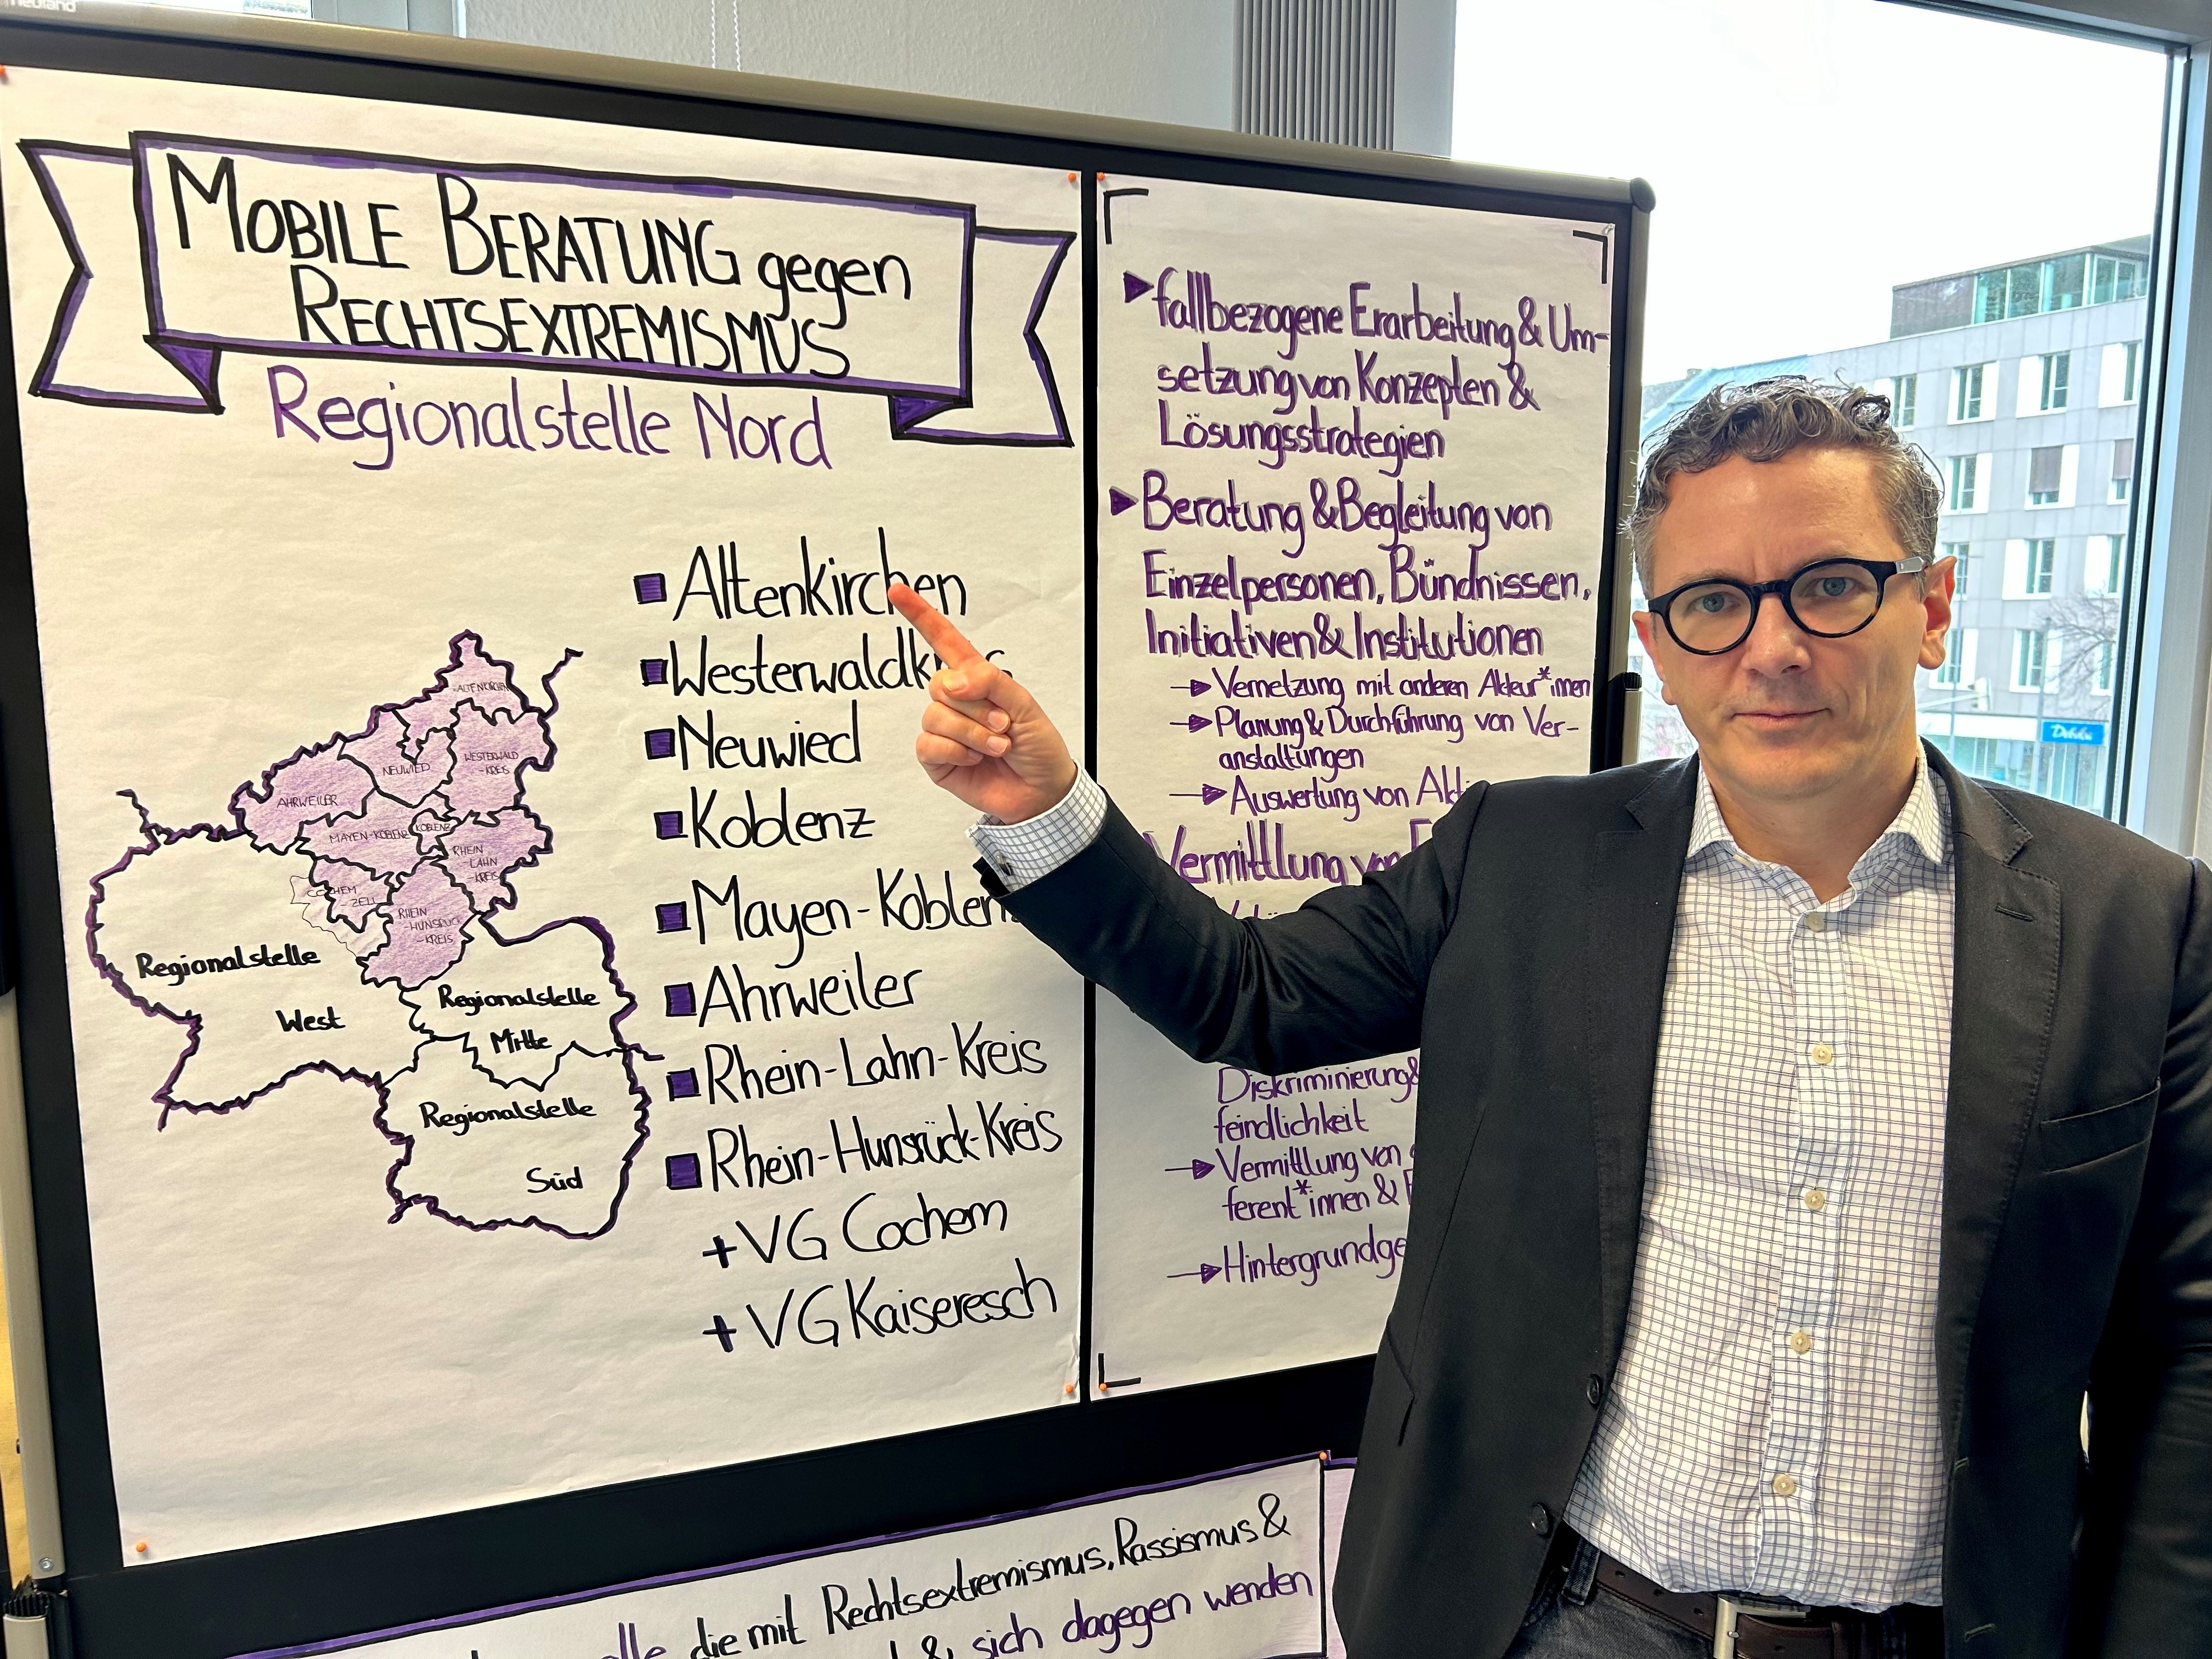 neuland
MOBILE BERATUNG gegen
RECHTSEXTREMISMUS
Regionalstelle Nord
Altenkirchen
Westerwaldk
Neuwied
Koblenz
Mayen-Koblen
Ahrweiler
Rhein-Lahn-Kreis
Rhein-Hunsrück-Kreis
+ VG Cochem
+ VG Kaiseresch
ALTENKIRCHEN
WESTERWALD
-KREIS
NEUWIED
AHRWEILER
MAYEN-KOBLENZ
KOBLENZ
RHEIN
-LAHN
-KREIS
COCHEM
ZELL
RHEIN
-HUNSRÜCK
-KREIS
Regionalstelle
West
Regionalstelle
Mitte
Regionalstelle
Süd
fallbezogene Erarbeitung & Um-
setzung von Konzepten &
Lösungsstrategien
Beratung & Begleitung von
Einzelpersonen, Bündnissen,
Initiativen & Institutionen
Vernetzung mit anderen Akteur*innen
Planung & Durchführung von Ver-
anstaltungen
Auswertung von Akti
Vermittlung von
Diskriminierung &
feindlichkeit
Vermittlung von
ferent*innen &
Hintergrundge
die mit Rechtsextremismus, Rassismus &
& sich dagegen wenden